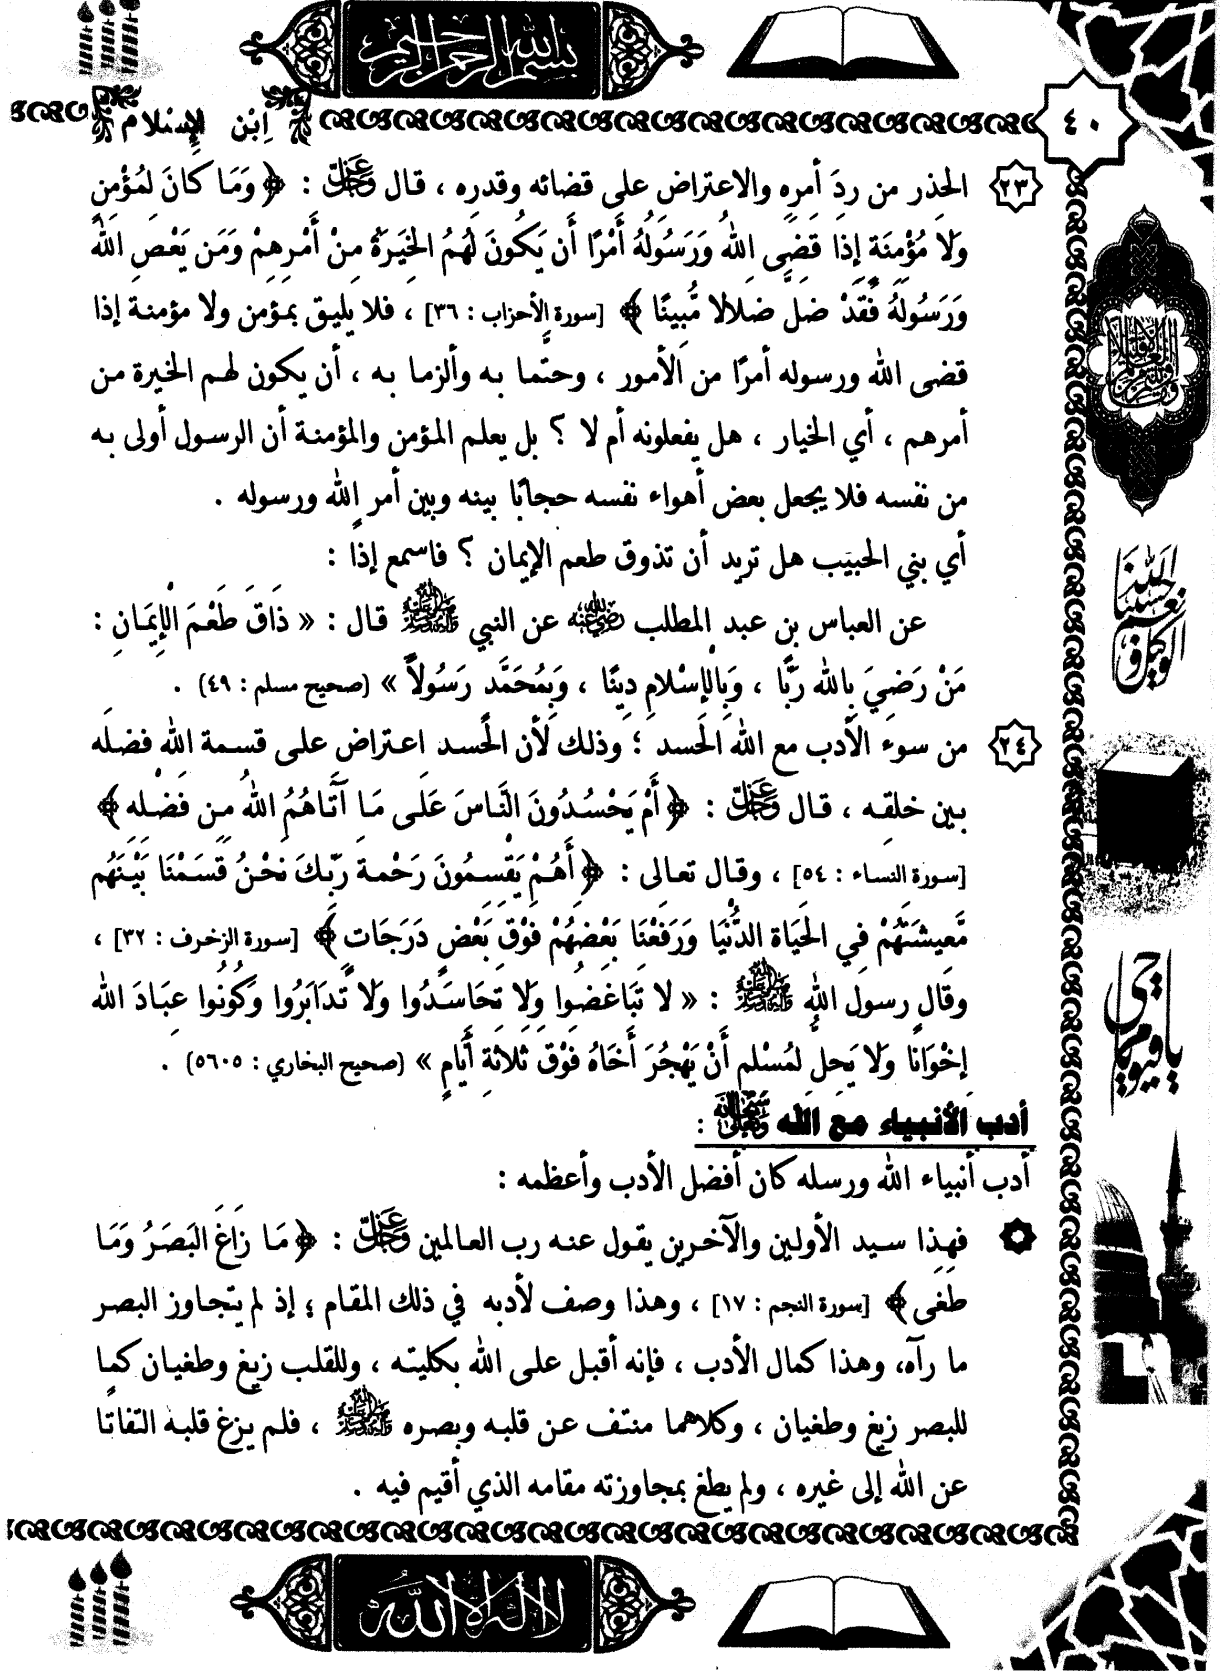 بسم الله الرحمن الرحيم
ابْن الإِسْلام
٤٠
٢٣ الحذر من ردَ أمره والاعتراض على قضائه وقدره ، قال عز وجل : ﴿ وَمَا كَانَ لِمُؤْمِنٍ
وَلَا مُؤْمِنَةٍ إِذَا قَضَى اللهُ وَرَسُولُهُ أَمْرًا أَن يَكُونَ لَهُمُ الْخِيَرَةُ مِنْ أَمْرِهِمْ وَمَن يَعْصِ اللهَ
وَرَسُولَهُ فَقَدْ ضَلَّ ضَلالا مُّبِينًا ﴾ [سورة الأحزاب : ٣٦] ، فلا يليق بمؤمن ولا مؤمنة إذا
قضى الله ورسوله أمرًا من الأمور ، وحتَّما به وألزما به ، أن يكون لهم الخيرة من
أمرهم ، أي الخيار ، هل يفعلونه أم لا ؟ بل يعلم المؤمن والمؤمنة أن الرسول أولى به
من نفسه فلا يجعل بعض أهواء نفسه حجابًا بينه وبين أمر الله ورسوله .
أي بني الحبيب هل تريد أن تذوق طعم الإيمان ؟ فاسمع إذًا :
عن العباس بن عبد المطلب رضي الله عنه عن النبي صلى الله عليه وآله وسلم قال : « ذَاقَ طَعْمَ الْإِيمَانِ :
مَنْ رَضِيَ بِاللهِ رَبًّا ، وَبِالْإِسْلَامِ دِينًا ، وَبِمُحَمَّدٍ رَسُولاً » (صحيح مسلم : ٤٩) .
٢٤ من سوء الأدب مع الله الحَسد ؛ وذلك لأن الحَسد اعتراض على قسمة الله فضله
بين خلقه ، قال عز وجل : ﴿ أَمْ يَحْسُدُونَ النَّاسَ عَلَى مَا آتَاهُمُ اللهُ مِن فَضْلِهِ ﴾
[سورة النساء : ٥٤] ، وقال تعالى : ﴿ أَهُمْ يَقْسِمُونَ رَحْمَةَ رَبِّكَ نَحْنُ قَسَمْنَا بَيْنَهُم
مَّعِيشَتَهُمْ فِي الْحَيَاةِ الدُّنْيَا وَرَفَعْنَا بَعْضَهُمْ فَوْقَ بَعْضٍ دَرَجَاتٍ ﴾ [سورة الزخرف : ٣٢] ،
وقال رسول الله صلى الله عليه وآله وسلم : « لا تَبَاغَضُوا وَلَا تَحَاسَدُوا وَلَا تَدَابَرُوا وَكُونُوا عِبَادَ اللهِ
إِخْوَانًا وَلَا يَحِلُّ لِمُسْلِمٍ أَنْ يَهْجُرَ أَخَاهُ فَوْقَ ثَلَاثَةِ أَيَّامٍ » (صحيح البخاري : ٥٦٠٥) .
أدب الأنبياء مع الله سبحانه وتعالى :
أدب أنبياء الله ورسله كان أفضل الأدب وأعظمه :
فهذا سيد الأولين والآخرين يقول عنه رب العالمين عز وجل : ﴿ مَا زَاغَ الْبَصَرُ وَمَا
طَغَى ﴾ [سورة النجم : ١٧] ، وهذا وصف لأدبه في ذلك المقام ؛ إذ لم يتجاوز البصر
ما رآه، وهذا كمال الأدب ، فإنه أقبل على الله بكليته ، وللقلب زيغ وطغيان كما
للبصر زيغ وطغيان ، وكلاهما منتف عن قلبه وبصره صلى الله عليه وآله وسلم ، فلم يزغ قلبه التفاتًا
عن الله إلى غيره ، ولم يطغ بمجاوزته مقامه الذي أقيم فيه .
حسبنا الله ونعم الوكيل
يا حي يا قيوم
لا إله إلا الله